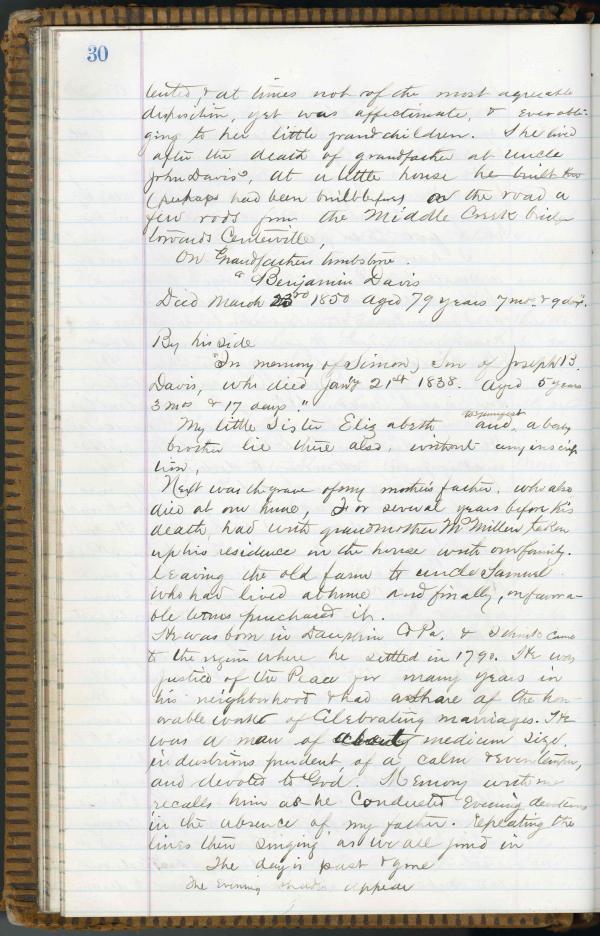 30
lented, & at times not of the most agreeable
disposition, yet was affectionate, & ever obli-
ging to her little grandchildren. She lived
after the death of grandfather at uncle
John Davis', at a little house he built
(perhaps had been built before) on the road a
few rods from the Middle Creek bridge
towards Centerville,
On Grandfathers tombstone.
"Benjamin Davis
Died March 23rd 1850 aged 79 years 7 mos. & 9 days".
By his side
"In memory of Simon, Son of Joseph B.
Davis, who died Jan'y 21st 1838. Aged 5 years
3 mos & 17 days."
My little Sister Elizabeth and, youngest a baby
brother lie there also, without any inscrip
tion,
Next was the grave of my mother's father, who also
died at our home, For several years before his
death, had with grandmother McMillen taken
up his residence in the house with our family.
leaving the old farm to uncle Samuel
who had lived at home and finally, on favora-
ble terms purchased it.
He was born in Dauphin Co Pa. & came
to the region where he settled in 1790. He was
justice of the Peace for many years in
his neighborhood & had a share of the hon
orable work of Celebrating marriages. He
was a man of medium size.
industrious prudent of a calm & even temper,
and devoted to God. Memory with me
recalls him as he Conducted Evening devotions
in the absence of my father. repeating the
lines then singing as we all joined in
The day is past & gone
The Evening shades appear